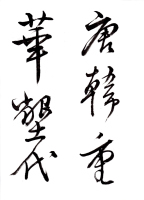 唐韓重
華墾代